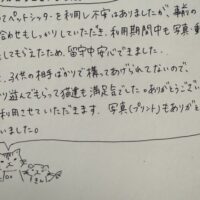 てペットシッターを利用し不安はありましたが、事前の
合わせもしっかりしていただき、利用期間中も写真・動
してもらえたため、留守中安心できました。
、子供の相手ばかりで構ってあげられてないので、
り遊んでもらって猫達も満足旨でした。ありがとうござい
利用させていただきます。写真(プリント)もありがと
いました。